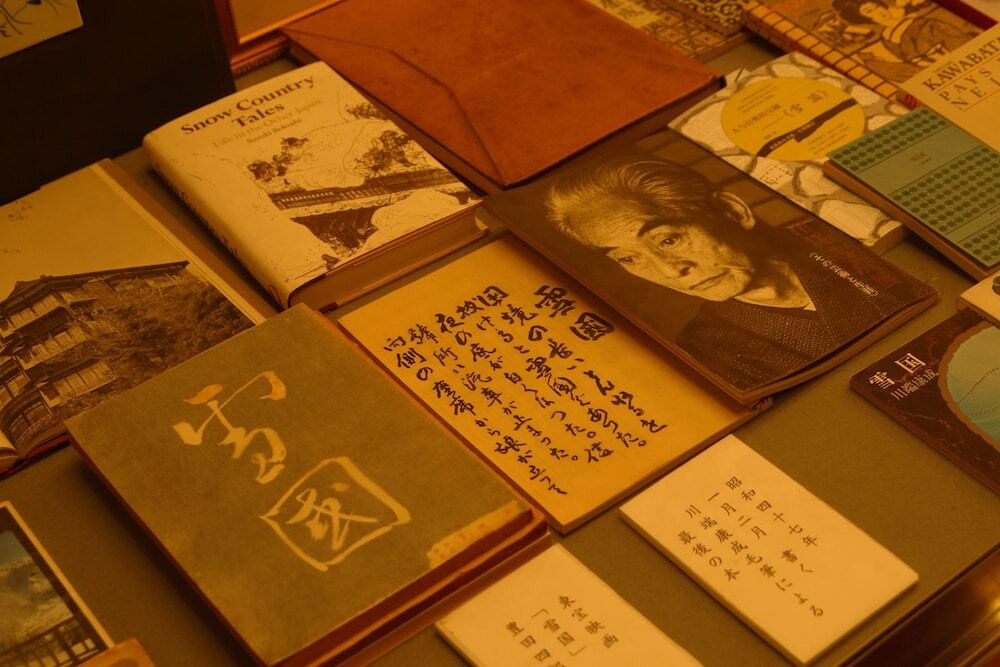 Snow Country
Tales
Life in the Other Japan
Suzuki Bokushi
雪國
雪國
国境の長いとんねるを
抜けると雪国であつた。
夜の底が白くなつた。信
号所に汽車が止まつた。
向側の座席から娘が立て
(その芸術と生涯)
KAWABAT
PAYS
NE
(雪国)
雪国
川端康成
昭和四十七年
一月二月 書く
川端康成毛筆による
最後の本
東宝映画
「雪国」
豊田四郎